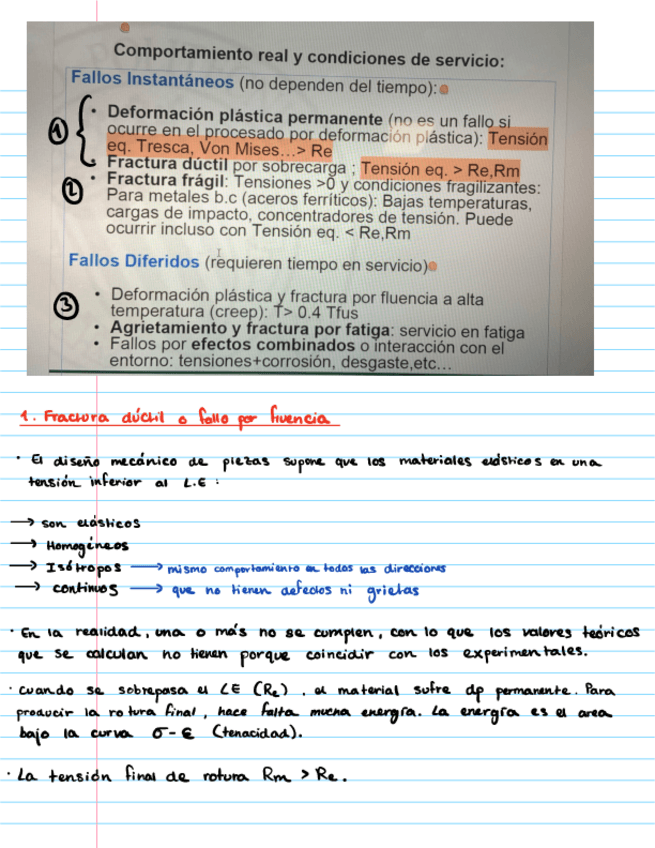 Comportamiento real y condiciones de servicio:
Fallos Instantáneos (no dependen del tiempo):
① • Deformación plástica permanente (no es un fallo si
ocurre en el procesado por deformación plástica): Tensión
eq. Tresca, Von Mises...> Re
Fractura dúctil por sobrecarga ; Tensión eq. > Re,Rm
② • Fractura frágil: Tensiones >0 y condiciones fragilizantes:
Para metales b.c (aceros ferríticos): Bajas temperaturas,
cargas de impacto, concentradores de tensión. Puede
ocurrir incluso con Tensión eq. < Re,Rm
Fallos Diferidos (requieren tiempo en servicio)
③ • Deformación plástica y fractura por fluencia a alta
temperatura (creep): T> 0.4 Tfus
• Agrietamiento y fractura por fatiga: servicio en fatiga
• Fallos por efectos combinados o interacción con el
entorno: tensiones+corrosión, desgaste,etc...
1. Fractura dúctil o fallo por fluencia
· El diseño mecánico de piezas supone que los materiales elásticos en una
tensión inferior al L.E :
→ son elásticos
→ Homogéneos
→ Isótropos → mismo comportamiento en todas las direcciones
→ continuos → que no tienen defectos ni grietas
· En la realidad, una o más no se cumplen, con lo que los valores teóricos
que se calculan no tienen porque coincidir con los experimentales.
· cuando se sobrepasa el LE (Re), el material sufre dp permanente. Para
producir la rotura final, hace falta mucha energía. La energía es el area
bajo la curva σ-ε (tenacidad).
· La tensión final de rotura Rm > Re.